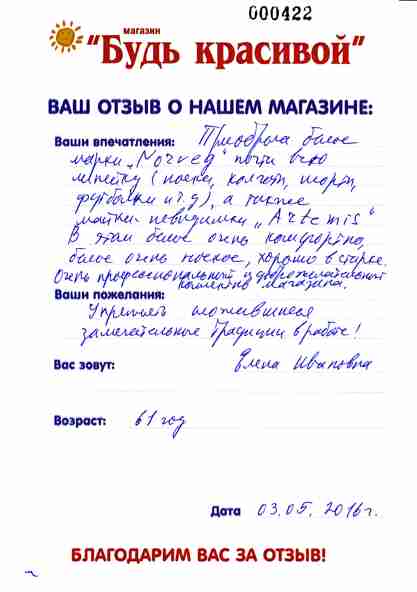 000422
магазин
"Будь красивой"
ВАШ ОТЗЫВ О НАШЕМ МАГАЗИНЕ:
Ваши впечатления: Приобрела белье
марки "Norveg" почти всю
линейку (носки, колготы, шорты,
футболки и т.д), а также
майки-невидимки "Artemis"
В этом белье очень комфортно,
белье очень ноское, хорошо в стирке.
Очень профессиональный и доброжелательный
коллектив магазина.
Ваши пожелания:
Укреплять сложившиеся
замечательные традиции в работе!
Вас зовут: Елена Ивановна
Возраст: 61 год
Дата 03.05.2016г.
БЛАГОДАРИМ ВАС ЗА ОТЗЫВ!